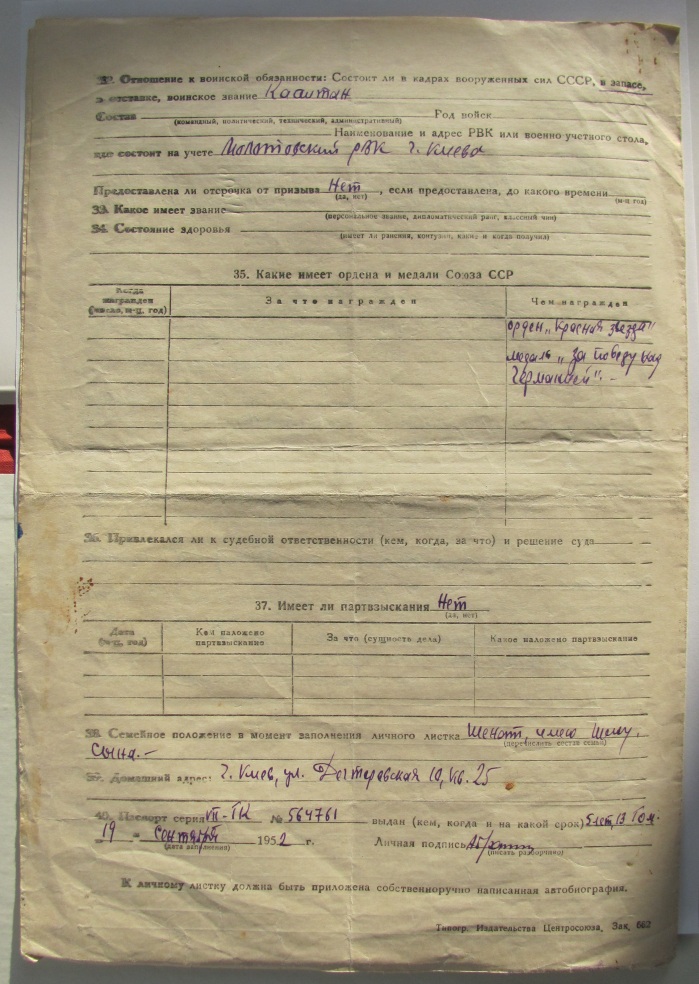 32. Отношение к воинской обязанности: Состоит ли в кадрах вооруженных сил СССР, в запасе,
в отставке, воинское звание Капитан
Состав Год войск
(командный, политический, технический, административный)
Наименование и адрес РВК или военно-учетного стола,
где состоит на учете Молотовский РВК г. Киева
Предоставлена ли отсрочка от призыва Нет, если предоставлена, до какого времени
(да, нет) (м-ц, год)
33. Какое имеет звание
(персональное звание, дипломатический ранг, классный чин)
34. Состояние здоровья
(имеет ли ранения, контузии, какие и когда получил)
35. Какие имеет ордена и медали Союза ССР
Когда награжден (число, м-ц, год) За что награжден Чем награжден
орден „Красная звезда"
медаль „За победу над
Германией". -
36. Привлекался ли к судебной ответственности (кем, когда, за что) и решение суда
37. Имеет ли партвзыскания Нет
(да, нет)
Дата (м-ц, год) Кем наложено партвзыскание За что (сущность дела) Какое наложено партвзыскание
38. Семейное положение в момент заполнения личного листка Женат, имею жену,
(перечислить состав семьи)
сына. -
39. Домашний адрес: г. Киев, ул. Дегтяревская 10, кв. 25
40. Паспорт серия № 564761 выдан (кем, когда и на какой срок)
„19" сентября 1952 г. Личная подпись
(дата заполнения) (писать разборчиво)
К личному листку должна быть приложена собственноручно написанная автобиография.
Типогр. Издательства Центросоюза, Зак. 662